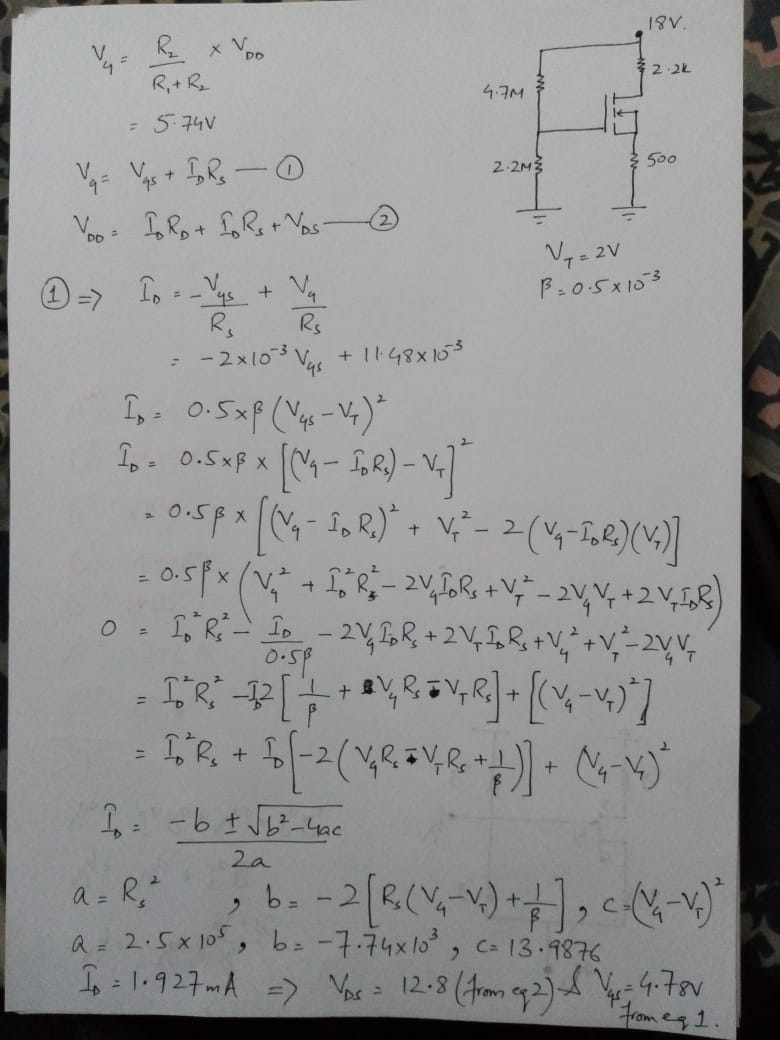 V_G = R₂ / (R₁ + R₂) × V_DD
= 5.74V
V_G = V_GS + I_D R_S — ①
V_DD = I_D R_D + I_D R_S + V_DS — ②
① => I_D = -V_GS / R_S + V_G / R_S
= -2×10⁻³ V_GS + 11.48×10⁻³
18V.
2.2k
4.7M
2.2M
500
V_T = 2V
β = 0.5×10⁻³
I_D = 0.5×β (V_GS - V_T)²
I_D = 0.5×β × [(V_G - I_D R_S) - V_T]²
= 0.5β × [(V_G - I_D R_S)² + V_T² - 2(V_G - I_D R_S)(V_T)]
= 0.5β × (V_G² + I_D² R_S² - 2V_G I_D R_S + V_T² - 2V_G V_T + 2V_T I_D R_S)
0 = I_D² R_S² - I_D / 0.5β - 2V_G I_D R_S + 2V_T I_D R_S + V_G² + V_T² - 2V_G V_T
= I_D² R_S² - I_D 2 [1/β + V_G R_S - V_T R_S] + [(V_G - V_T)²]
= I_D² R_S + I_D [-2(V_G R_S - V_T R_S + 1/β)] + (V_G - V_T)²
I_D = (-b ± √(b² - 4ac)) / 2a
a = R_S², b = -2[R_S(V_G - V_T) + 1/β], c = (V_G - V_T)²
a = 2.5×10⁵, b = -7.74×10³, c = 13.9876
I_D = 1.927mA => V_DS = 12.8 (from eq 2) & V_GS = 4.78V
from eq 1.